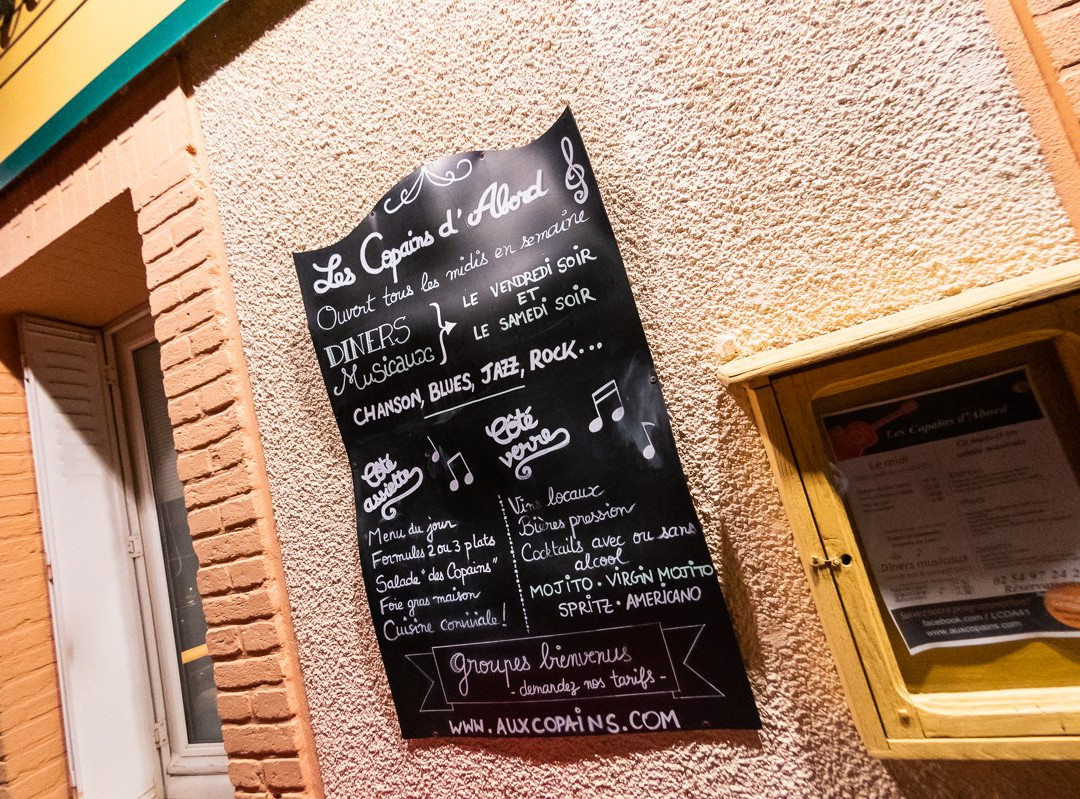 Les Copains d'Abord
Ouvert tous les midis en semaine
DÎNERS
Musicaux
LE VENDREDI SOIR
ET
LE SAMEDI SOIR
CHANSON, BLUES, JAZZ, ROCK...
Côté
assiette
Côté
verre
Menu du jour
Formules 2 ou 3 plats
Salade "des Copains"
Foie gras maison
Cuisine conviviale !
Vins locaux
Bières pression
Cocktails avec ou sans
alcool
MOJITO • VIRGIN MOJITO
SPRITZ • AMERICANO
Groupes bienvenus
- demandez nos tarifs -
WWW.AUXCOPAINS.COM
Les Copains d'Abord
Le midi
Dîners musicaux
02 54 97 24 2
facebook.com / LCDA41
www.auxcopains.com